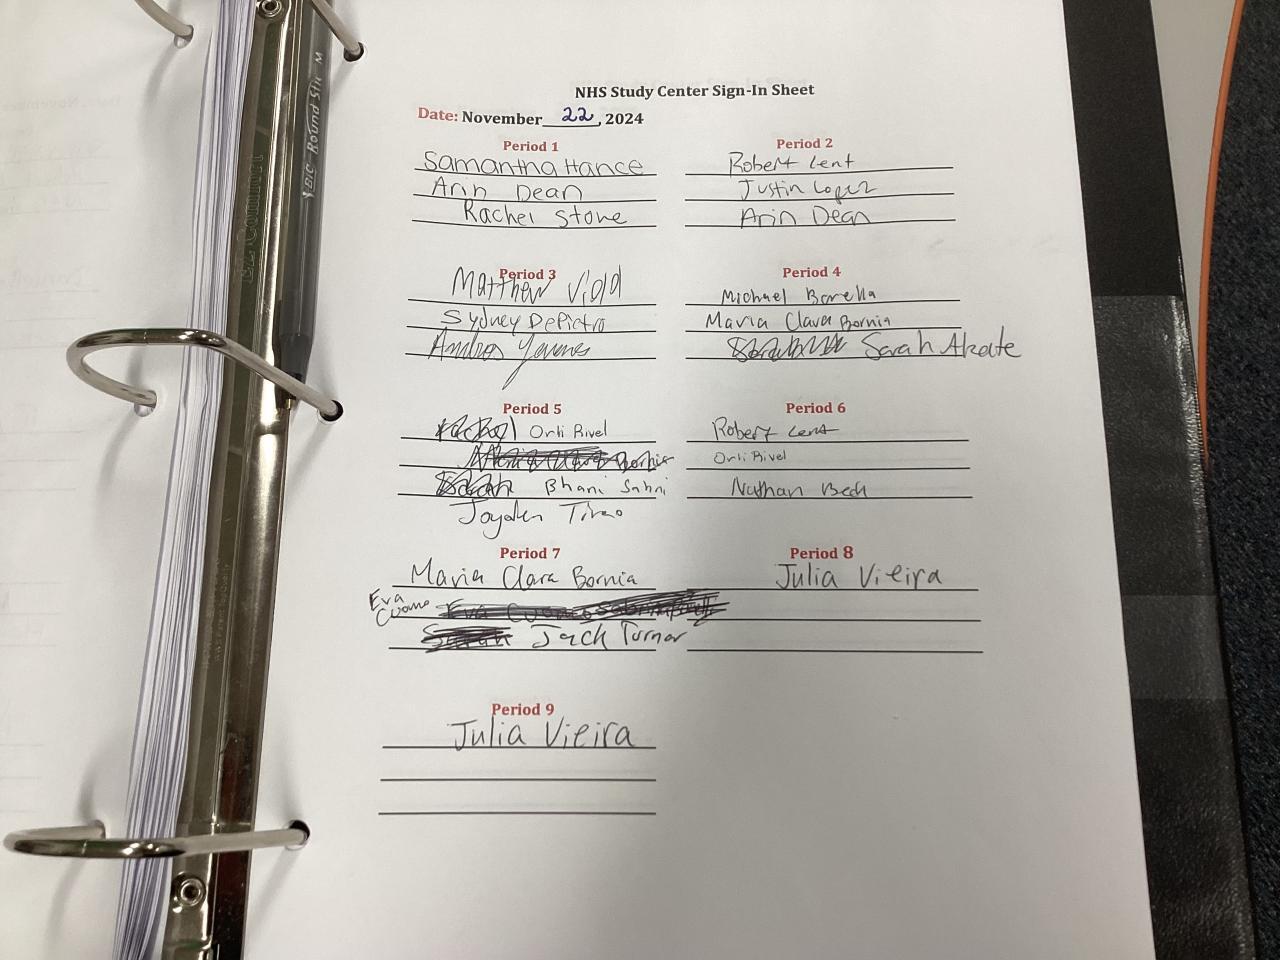 NHS Study Center Sign-In Sheet
Date: November 22, 2024
Period 1
Samantha Hance
Arin Dean
Rachel Stone
Period 2
Robert Lent
Justin Lopez
Arin Dean
Period 3
Matthew Viola
Sydney DePietro
Andres
Period 4
Michael Borella
Maria Clara Bornia
Sarah
Period 5
Orli Rivel
Bhani Sahni
Jayden
Period 6
Robert Lent
Orli Rivel
Nathan Beck
Period 7
Maria Clara Bornia
Eva
Cuomo
Jack Turner
Period 8
Julia Vieira
Period 9
Julia Vieira
BIC Round Stic M